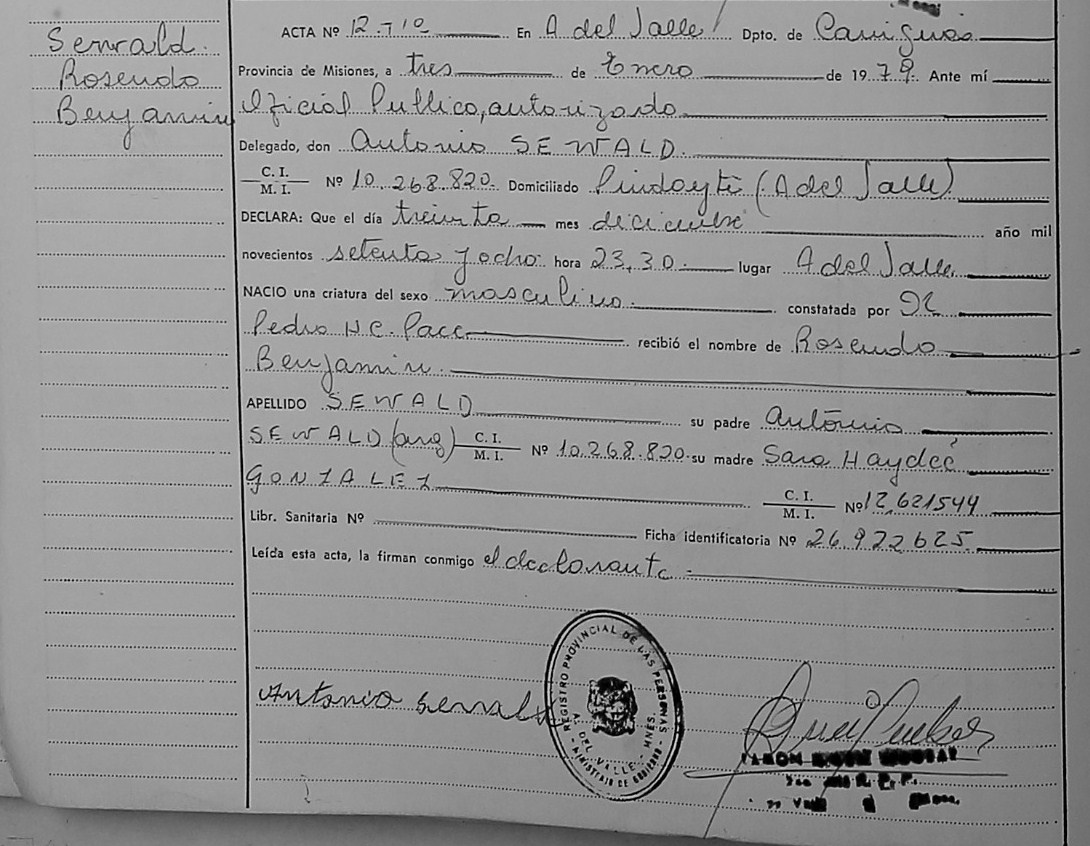 Sewald.
Rosendo
Benjamin
ACTA Nº 12-Tº En A del Valle Dpto. de
Provincia de Misiones, a tres de Enero de 1979. Ante mí
Oficial Publico, autorizado
Delegado, don Antonio SEWALD.
C. I.
M. I. Nº 10.268.820. Domiciliado Pindayti (A del Valle)
DECLARA: Que el día treinta mes año mil
novecientos setenta y ocho hora 23,30 lugar A del Valle
NACIO una criatura del sexo masculino. constatada por
Pedro H.C. recibió el nombre de Rosendo
Benjamin.
APELLIDO SEWALD su padre Antonio
SEWALD (arg) C. I.
M. I. Nº 10.268.820. su madre Sara Haydeé
GONZALEZ C. I.
M. I. Nº 12,621544
Libr. Sanitaria Nº Ficha identificatoria Nº 26.922625
Leída esta acta, la firman conmigo el declarante
Antonio Sewald
REGISTRO PROVINCIAL DE LAS PERSONAS
A. DEL VALLE - MNES.
MINISTERIO DE GOBIERNO